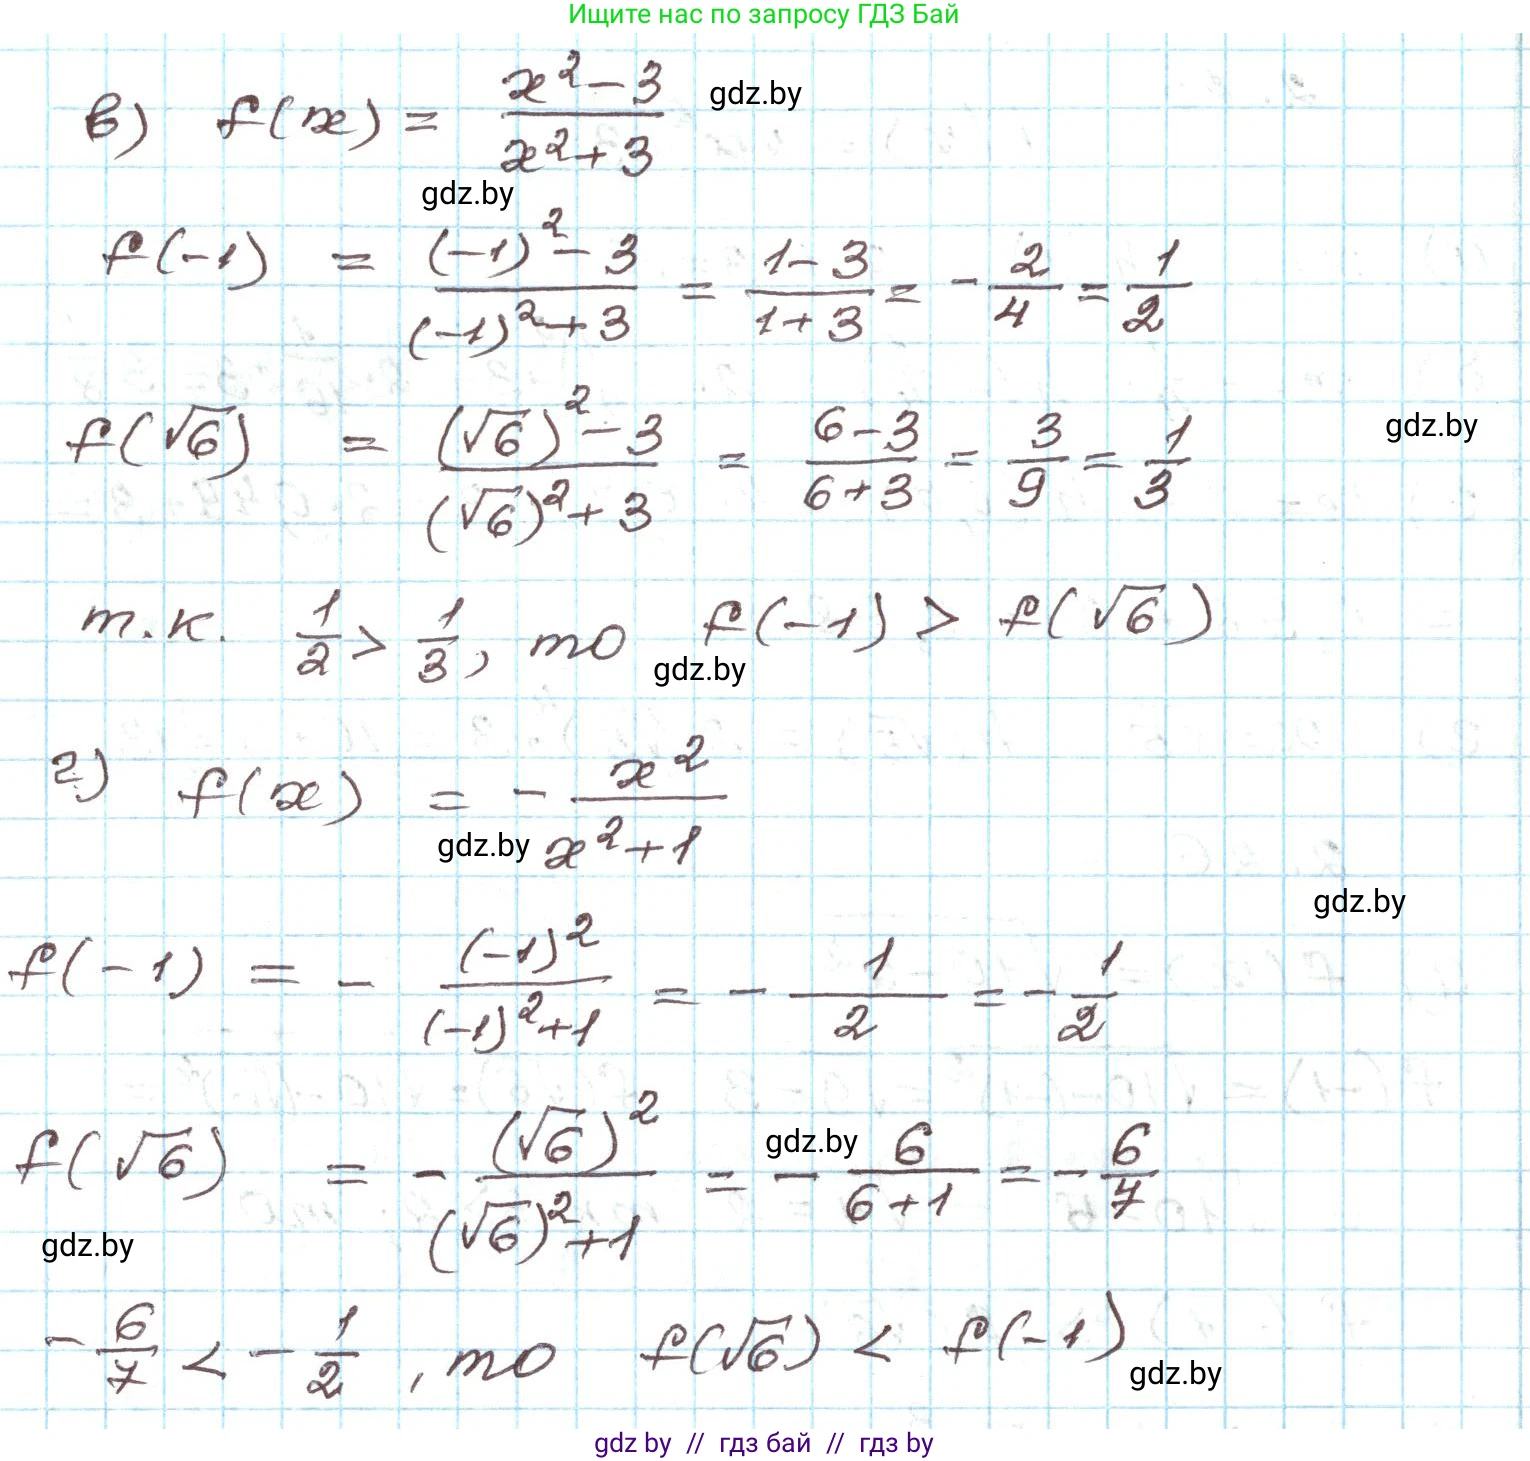 Ищите нас по запросу ГДЗ Бай
в) f(x) = (x² - 3)/(x² + 3) gdz.by
gdz.by
f(-1) = ((-1)² - 3)/((-1)² + 3) = (1 - 3)/(1 + 3) = - 2/4 = 1/2
f(√6) = ((√6)² - 3)/((√6)² + 3) = (6 - 3)/(6 + 3) = 3/9 = 1/3 gdz.by
т.к. 1/2 > 1/3, то f(-1) > f(√6)
gdz.by
г) f(x) = - x²/(x² + 1)
gdz.by
gdz.by
f(-1) = - (-1)²/((-1)² + 1) = - 1/2 = - 1/2
f(√6) = - (√6)²/((√6)² + 1) = - 6/(6 + 1) = - 6/7 gdz.by
gdz.by
- 6/7 < - 1/2, то f(√6) < f(-1)
gdz.by
gdz by // гдз бай // гдз by